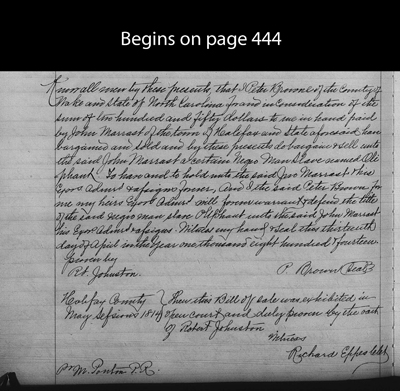 Begins on page 444
Know all men by these presents, that I Peter Browne of the County of
Wake and State of North Carolina for and in Consideration of the
sum of ten hundred and fifty dollars to me in hand paid
by John Marrast of the town of Halifax and State aforesaid have
bargained and sold and by these presents do bargain & sell unto
the said John Marrast a certain Negro Man Slave named Ole
phant. To have and to hold unto the said Jno Marrast & his
Exors Admrs & assigns forever, And I the said Peter Brown for
me my heirs Exors Admrs will forever warrant & defend the title
of the said negro man slave Oliphant unto the said John Marrast
his Exors Admrs & assigns. Witness my hand & seal this thirtieth
day of April in the year one thousand eight hundred & fourteen
Proven by
Rt. Johnston.
P. Brown (Seal)
Halifax County
May Sessions 1814
Then this Bill of sale was exhibited in
open court and duly proven by the oath
of Robert Johnston
Witness
Richard Eppes Clk
pr M. Ponton P.R.